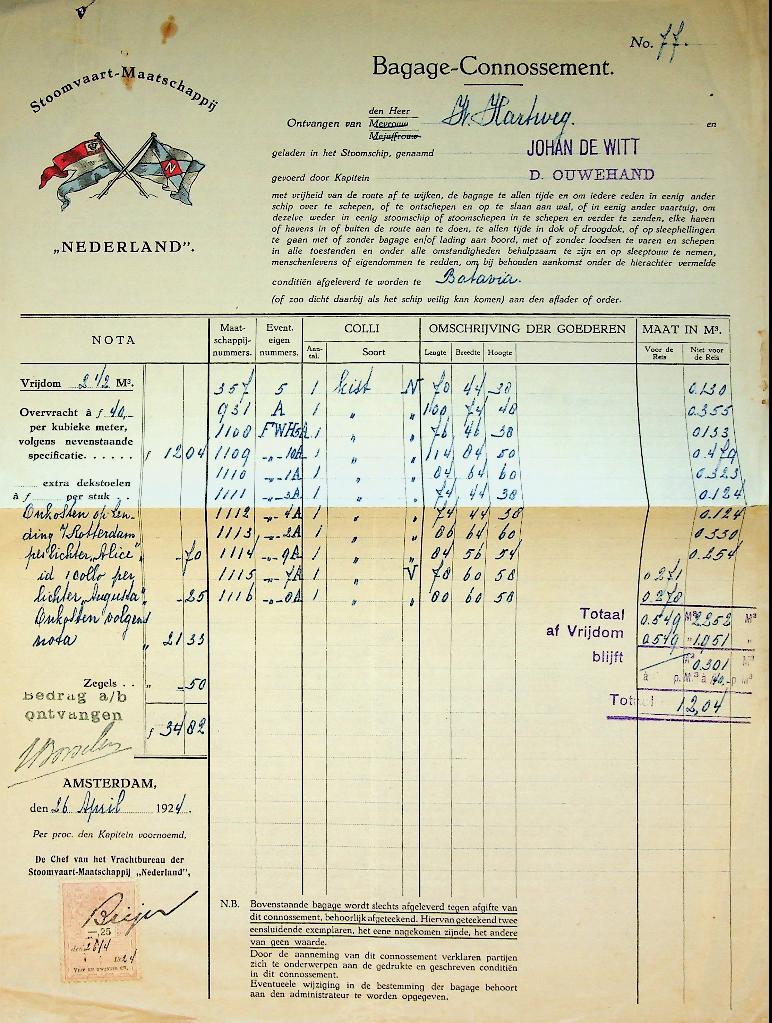 No. 77.
Stoomvaart-Maatschappij
„NEDERLAND".
Bagage-Connossement.
Ontvangen van den Heer Mevrouw Mejuffrouw Hartweg. en
geladen in het Stoomschip, genaamd JOHAN DE WITT
gevoerd door Kapitein D. OUWEHAND
met vrijheid van de route af te wijken, de bagage te allen tijde en om iedere reden in eenig ander
schip over te schepen, of te ontschepen en op te slaan aan wal, of in eenig ander vaartuig, om
dezelve weder in eenig stoomschip of stoomschepen in te schepen en verder te zenden, elke haven
of havens in of buiten de route aan te doen, te allen tijde in dok of droogdok, of op sleephellingen
te gaan met of zonder bagage en/of lading aan boord, met of zonder loodsen te varen en schepen
in alle toestanden en onder alle omstandigheden behulpzaam te zijn en op sleeptouw te nemen,
menschenlevens of eigendommen te redden, om bij behouden aankomst onder de hierachter vermelde
conditiën afgeleverd te worden te Batavia.
(of zoo dicht daarbij als het schip veilig kan komen) aan den aflader of order.
NOTA
Maatschappij-nummers.
Event. eigen nummers.
COLLI
Aantal.
Soort
OMSCHRIJVING DER GOEDEREN
Lengte Breedte Hoogte
MAAT IN M³.
Voor de Reis
Niet voor de Reis
Vrijdom 2 1/2 M³.
Overvracht à ƒ 40,-
per kubieke meter,
volgens nevenstaande
specificatie. . . . . ƒ 12 04
extra dekstoelen
à ƒ per stuk . .
Onkosten op len-
ding Rotterdam
per lichter „Alice" „ - 70
id 1 collo per
lichter „Augusta" „ - 25
Onkosten volgens
nota „ 21 33
Zegels . . „ - 50
Bedrag a/b
ontvangen
ƒ 34 82
357 5 1 kist N 70 44 38 0.130
931 A 1 „ „ 100 74 48 0.355
1108 FWH5A 1 „ „ 76 46 38 0133
1109 -„- 10A 1 „ „ 114 84 50 0.479
1110 -„- 1A 1 „ „ 84 64 60 0.323
1111 -„- 3A 1 „ „ 74 44 38 0.124
1112 -„- 4A 1 „ „ 74 44 38 0.124
1113 -„- 2A 1 „ „ 86 64 60 0.330
1114 -„- 9A 1 „ „ 84 56 54 0.254
1115 -„- 7A 1 „ V 78 60 58 0.271
1116 -„- 8A 1 „ „ 80 60 58 0.278
Totaal 0.549 M³ 2.252 M³
af Vrijdom 0.549 „ 1.951 „
blijft M³ 0.301 M³
à p. M³ à 40,- p M³
Totaal 12,04
AMSTERDAM,
den 26 April 1924.
Per proc. den Kapitein voornoemd,
De Chef van het Vrachtbureau der
Stoomvaart-Maatschappij „Nederland",
-,25
den 26/4
1924
N.B. Bovenstaande bagage wordt slechts afgeleverd tegen afgifte van
dit connossement, behoorlijk afgeteekend. Hiervan geteekend twee
eensluidende exemplaren, het eene nagekomen zijnde, het andere
van geen waarde.
Door de aanneming van dit connossement verklaren partijen
zich te onderwerpen aan de gedrukte en geschreven conditiën
in dit connossement.
Eventueele wijziging in de bestemming der bagage behoort
aan den administrateur te worden opgegeven.